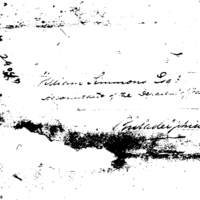 William Simmons Esq:
Accountant of the Department of War
Philadelphia